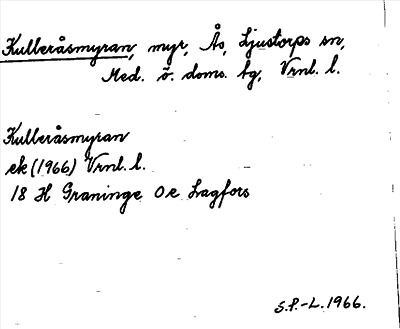 Kulleråsmyran, myr, Ås, Ljustorps sn,
Med. ö. doms. tg, Vrnl. l.
Kulleråsmyran
ek (1966) Vrnl. l.
18 H Graninge 0e Lagfors
S.P.-L. 1966.